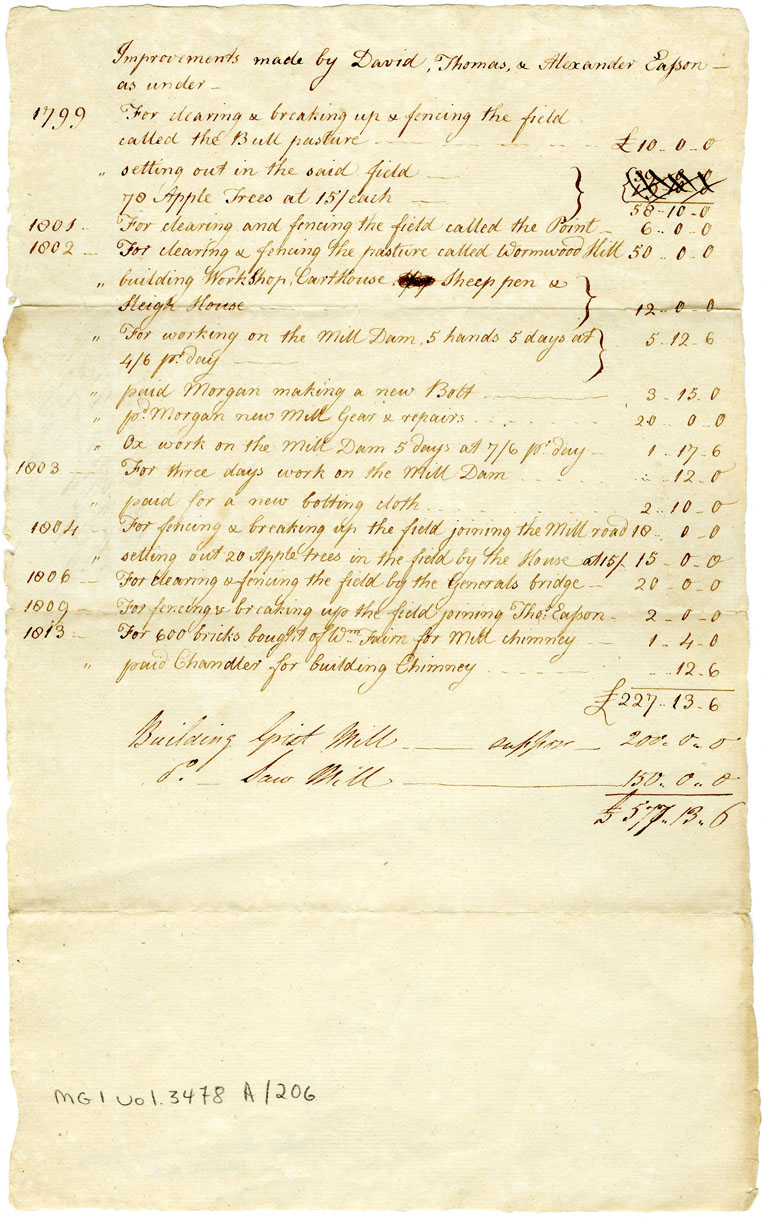 Improvements made by David, Thomas, & Alexander Easson —
as under —
1799 For clearing & breaking up & fencing the field
called the Bull pasture — £10 .. 0 .. 0
" setting out in the said field —
78 Apple Trees at 15/ each — 58 .. 10 .. 0
1801 — For clearing and fencing the field called the Point — 6 .. 0 .. 0
1802 — For clearing & fencing the pasture called Wormwood Hill 50 .. 0 .. 0
" building WorkShop, CartHouse, Sheep pen &
Sleigh House 12 .. 0 .. 0
" For working on the Mill Dam, 5 hands 5 days at 5 .. 12 .. 6
4/6 pr. day —
" paid Morgan making a new Bolt — 3 .. 15 .. 0
" pd. Morgan new Mill Gear & repairs 20 .. 0 .. 0
" Ox work on the Mill Dam 5 days at 7/6 pr. day — 1 .. 17 .. 6
1803 — For three days work on the Mill Dam .. 12 .. 0
" paid for a new bolting cloth 2 .. 10 .. 0
1804 — For fencing & breaking up the field joining the Mill road 18 .. 0 .. 0
" setting out 20 Apple trees in the field by the House at 15/. 15 .. 0 .. 0
1806 — For clearing & fencing the field by the Generals bridge — 20 .. 0 .. 0
1809 — For fencing & breaking up the field joining Thos. Easson — 2 .. 0 .. 0
1813 — For 600 bricks bought of Wm. Fairn for Mill chimney — 1 .. 4 .. 0
" paid Chandler for building Chimney .. 12 .. 6
£227 .. 13 .. 6
Building Grist Mill — suppose — 200 .. 0 .. 0
do. — Saw Mill — 150 .. 0 .. 0
£577 .. 13 .. 6
MG1 Vol. 3478 A/206